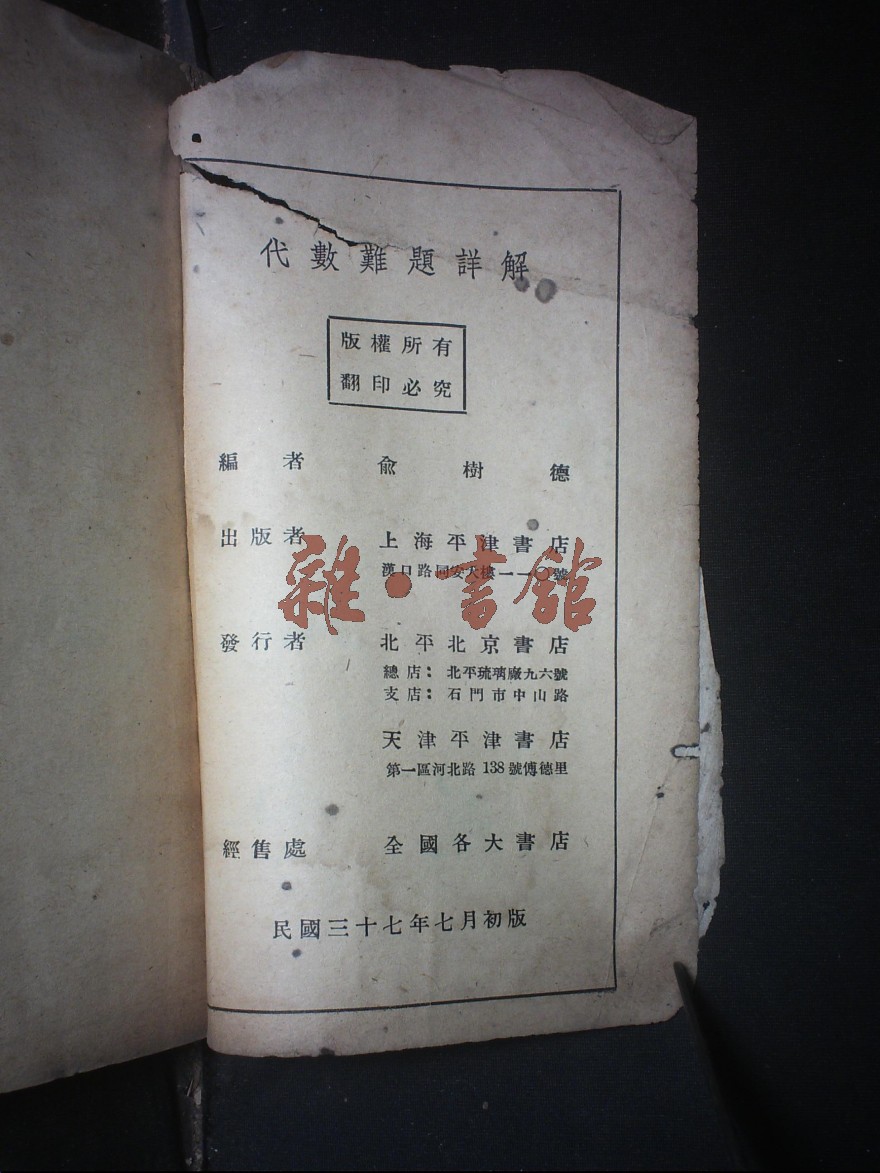 代數難題詳解
版權所有
翻印必究
編者 俞樹德
出版者 上海平津書店
漢口路同安大樓一一〇號
發行者 北平北京書店
總店：北平琉璃廠九六號
支店：石門市中山路
天津平津書店
第一區河北路138號傅德里
經售處 全國各大書店
民國三十七年七月初版
雜·書館